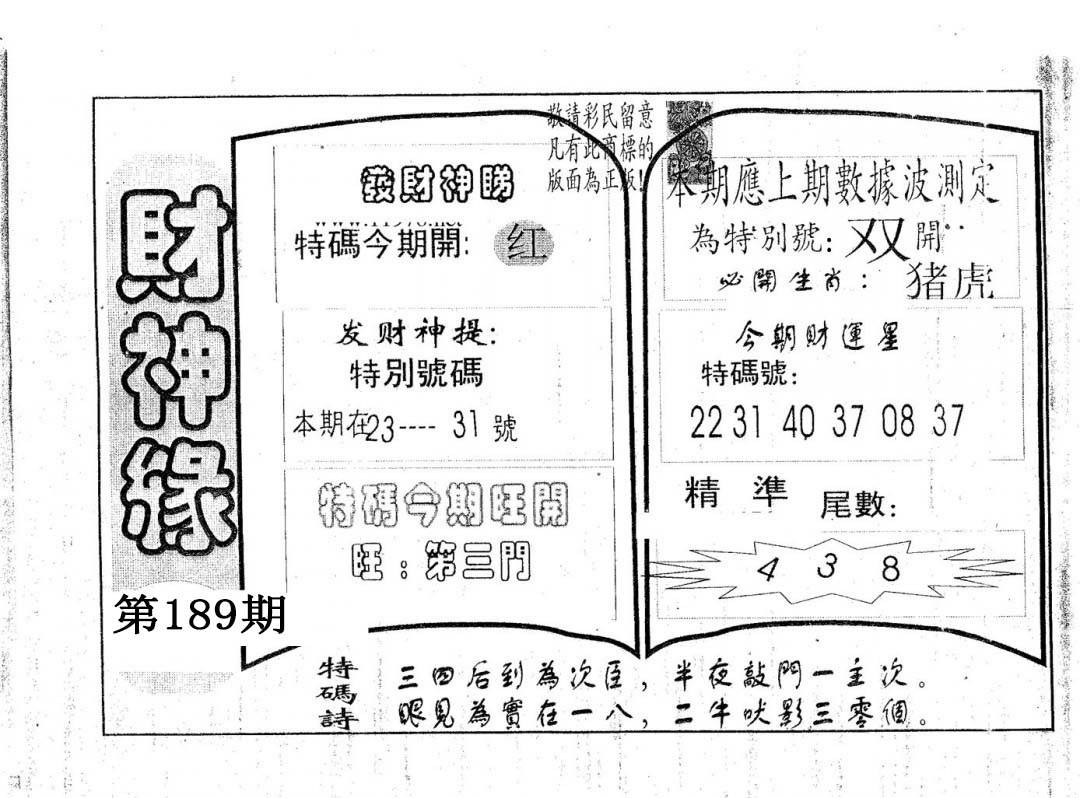 財神緣
第189期
敬請彩民留意
凡有此商標的
版面為正版!
發財神睇
特碼今期開: 红
发财神提:
特別號碼
本期在23----31號
特碼今期旺開
旺:第三門
本期應上期數據波測定
為特別號: 双開
必開生肖: 猪虎
今期財運星
特碼號:
22 31 40 37 08 37
精準 尾數:
4 3 8
特碼詩
三四后到為次臣,半夜敲門一主次。
眼見為實在一八,二牛吠影三零個。